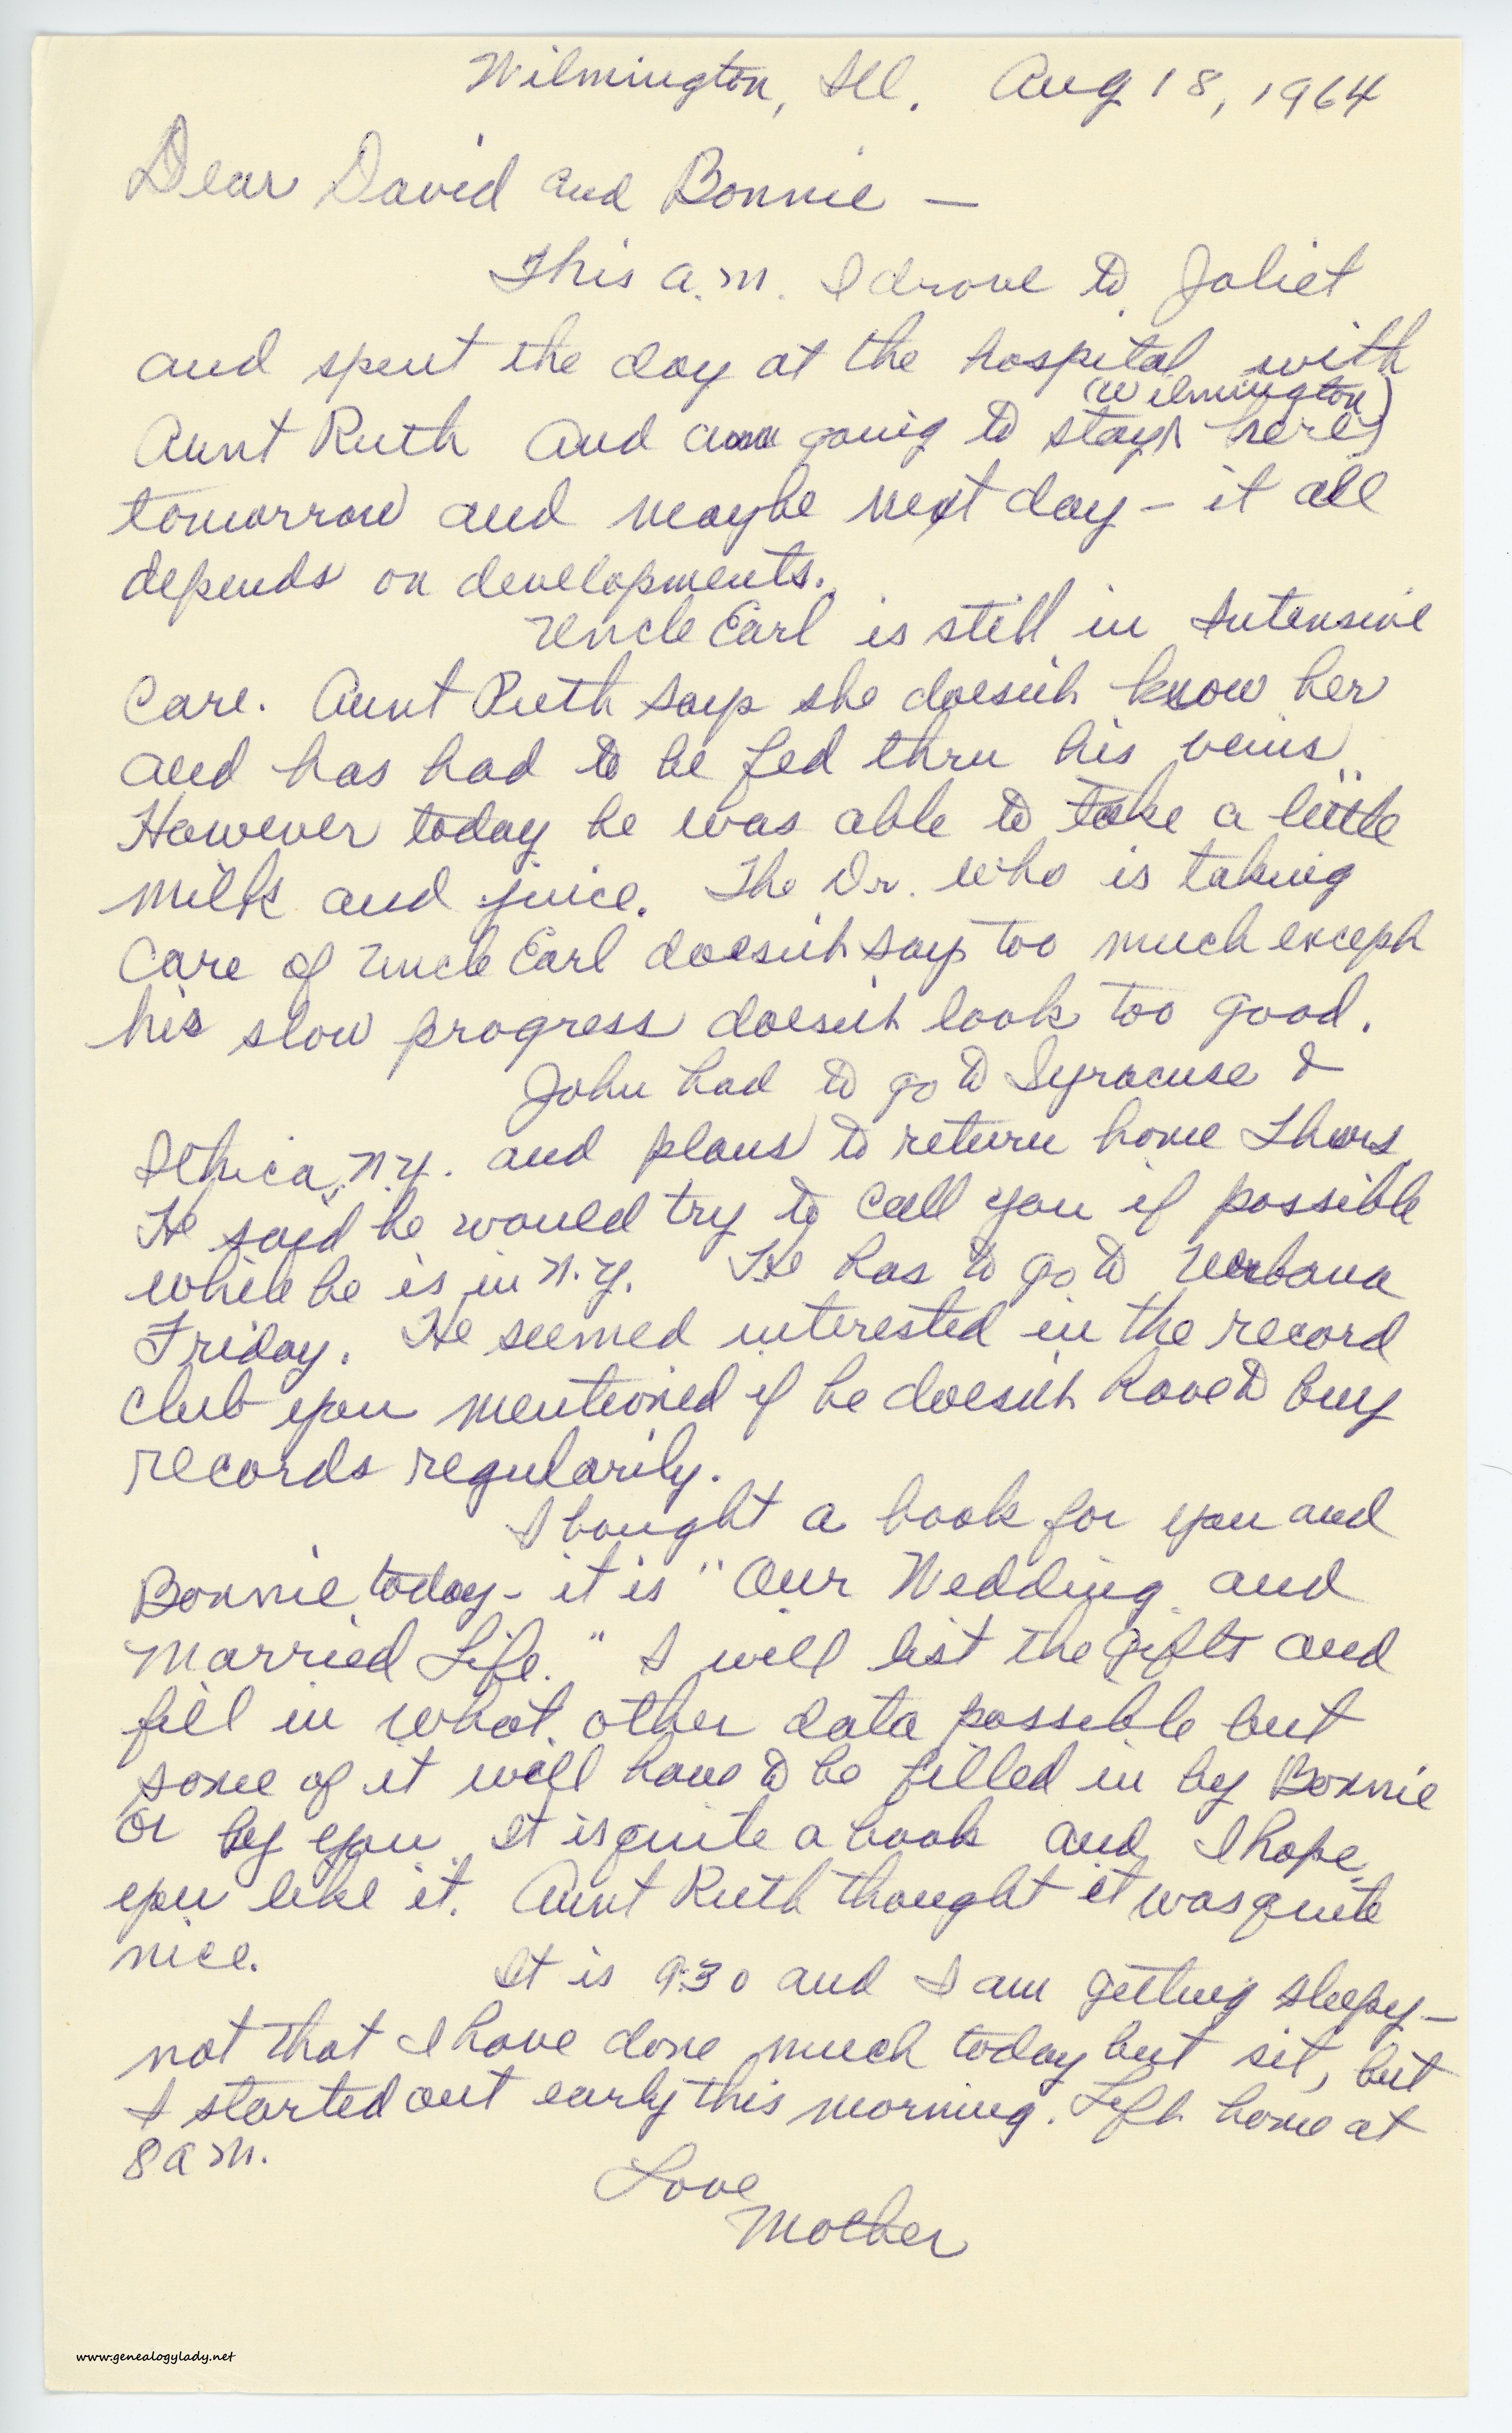 Wilmington, Ill. Aug 18, 1964
Dear David and Bonnie —
This a.m. I drove to Joliet
and spent the day at the hospital with
Aunt Ruth and am going to stay here (Wilmington)
tomorrow and maybe next day – it all
depends on developments.
Uncle Earl is still in Intensive
Care. Aunt Ruth says she doesn't know her
and has had to be fed thru his veins.
However today he was able to take a little
milk and juice. The Dr. who is taking
care of Uncle Earl doesn't say too much except
his slow progress doesn't look too good.
John had to go to Syracuse &
Ithica, N.Y. and plans to return home Thurs.
He said he would try to call you if possible
while he is in N.Y. He has to go to Urbana
Friday. He seemed interested in the record
club you mentioned if he doesn't have to buy
records regularily.
I bought a book for you and
Bonnie today – it is "Our Wedding and
Married Life." I will list the gifts and
fill in what other data possible but
some of it will have to be filled in by Bonnie
or by you. It is quite a book and I hope
you like it. Aunt Ruth thought it was quite
nice.
It is 9:30 and I am getting sleepy –
not that I have done much today but sit, but
I started out early this morning. Left home at
8 a m.
Love
Mother
www.genealogylady.net